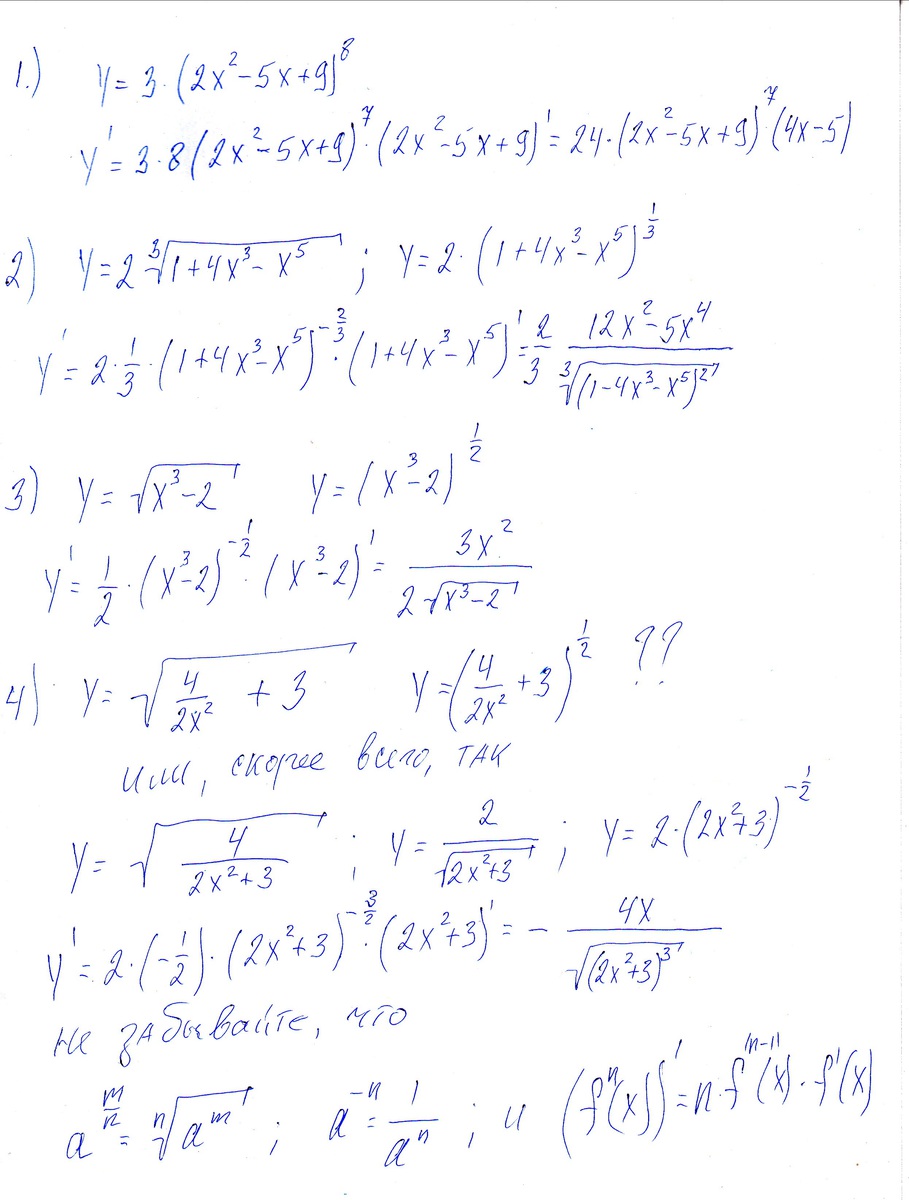 1.) y = 3·(2x²-5x+9)⁸
y' = 3·8(2x²-5x+9)⁷·(2x²-5x+9)' = 24·(2x²-5x+9)⁷·(4x-5)
2) y = 2∛(1+4x³-x⁵) ; y = 2·(1+4x³-x⁵)^(1/3)
y' = 2·1/3·(1+4x³-x⁵)^(-2/3)·(1+4x³-x⁵)' = 2/3 (12x²-5x⁴)/∛((1-4x³-x⁵)²)
3) y = √(x³-2) y = (x³-2)^(1/2)
y' = 1/2·(x³-2)^(-1/2)·(x³-2)' = 3x²/(2√(x³-2))
4) y = √(4/(2x²) + 3) y = (4/(2x²) + 3)^(1/2) ??
или, скорее всего, так
y = √(4/(2x²+3)) ; y = 2/√(2x²+3) ; y = 2·(2x²+3)^(-1/2)
y' = 2·(-1/2)·(2x²+3)^(-3/2)·(2x²+3)' = - 4x/√((2x²+3)³)
не забывайте, что
a^(m/n) = ⁿ√(a^m) ; a^(-n) = 1/aⁿ ; и (fⁿ(x))' = n·f^(n-1)(x)·f'(x)